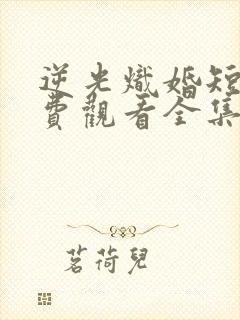 逆光熾婚短
費觀看全集
茗荷兒